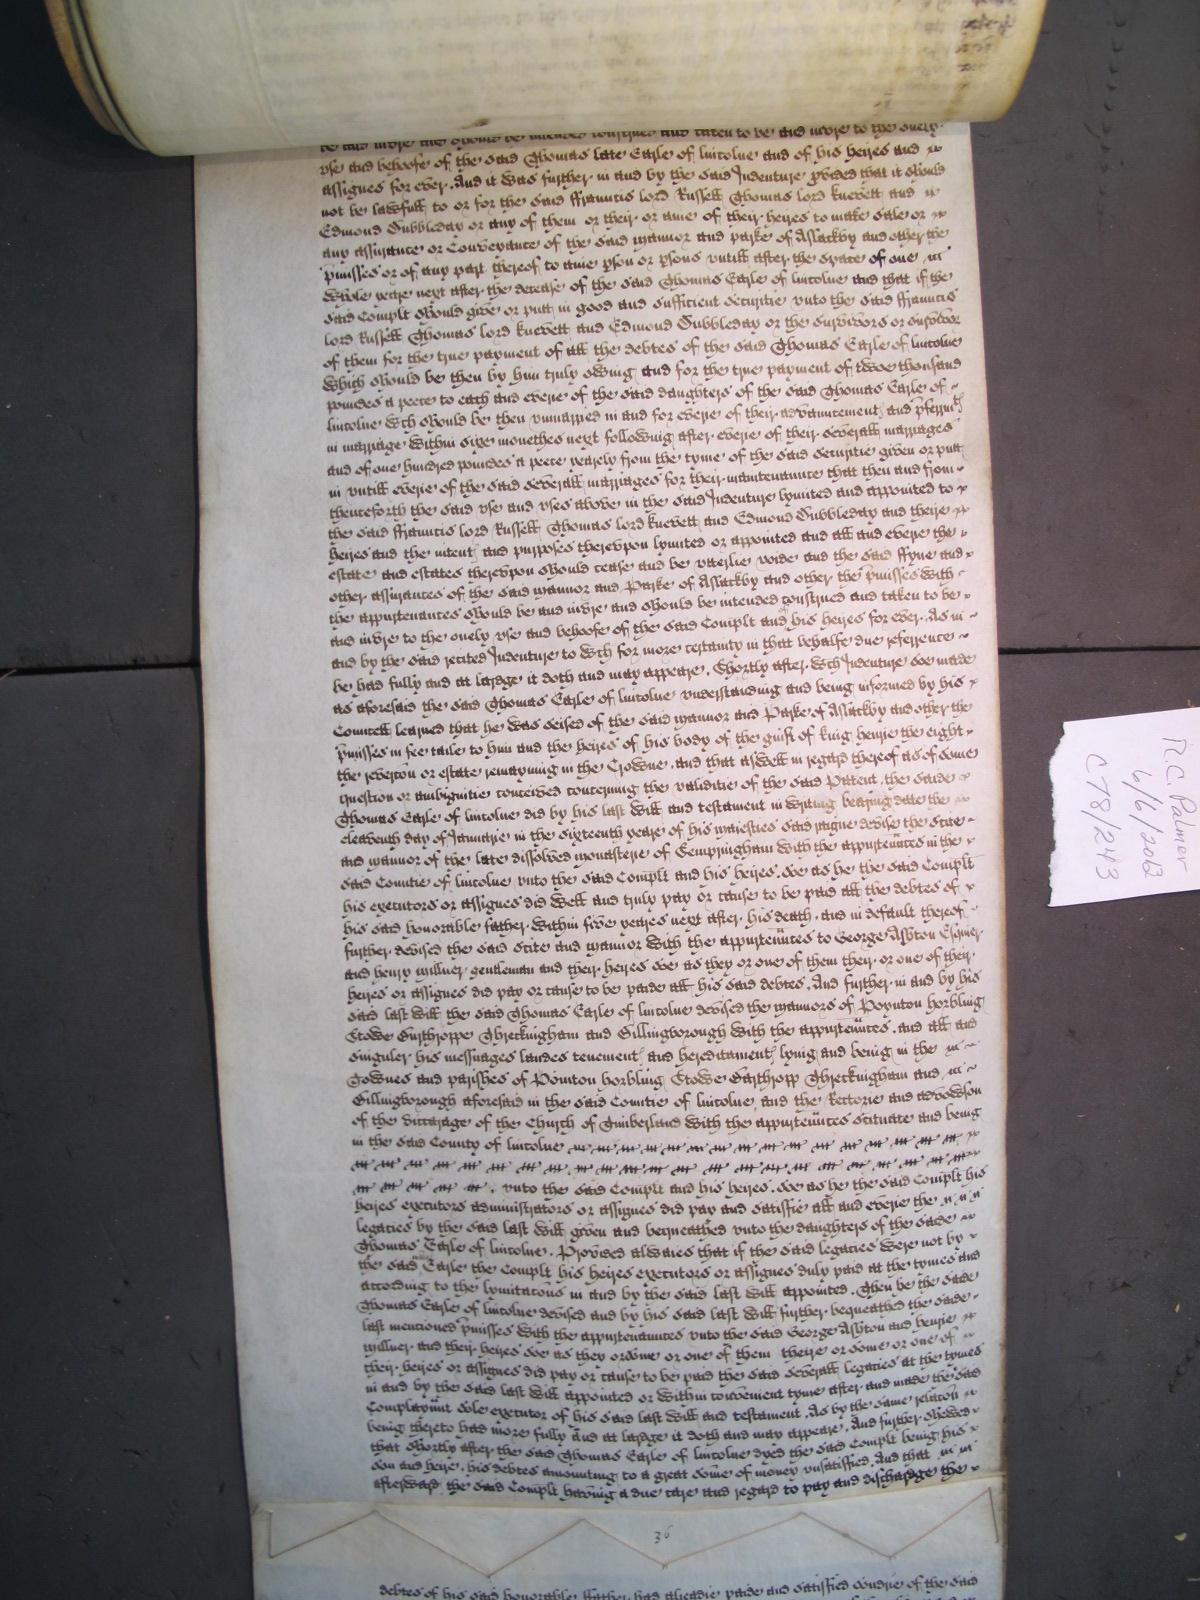 be and inure and should be intended construed and taken to be and inure to the onely
vse and behoofe of the said Thomas late Earle of lincolne and of his heires and
assignes for ever. And it was further in and by the said Indenture pvided that it should
not be lawfull to or for the said ffrauncis lord Russell Thomas lord knevett and
Edmond Dubbleday or any of them or their or anie of their heires to make sale or
any assurance or Conveyance of the said mannor and parke of Aslackby and other the
pmisses or of any part thereof to anie pson or psons vntill after the space of one
whole yeare next after the decease of the said Thomas Earle of lincolne and that if the
said Complt should give or putt in good and sufficient securitie vnto the said ffrauncis
lord Russell Thomas lord knevett and Edmond Dubbleday or the survivors or survivor
of them for the true payment of all the debtes of the said Thomas Earle of lincolne
which should be then by him truly owing and for the true payment of twoe thousand
poundes a peece to each and everie of the said daughters of the said Thomas Earle of
lincolne wch should be then vnmarried in and for everie of their advauncement and pferrmt
in marriage within sixe monethes next following after everie of their severall marriages
and of one hundred poundes a peece yearely from the tyme of the said securitie given or putt
in vntill everie of the said severall marriages for their maintenaunce that then and from
thenceforth the said vse and vses above in the said Indenture lymited and appointed to
the said ffrauncis lord Russell Thomas lord knevett and Edmond Dubbleday and theire
heires and the intent and purposes therevpon lymited or appointed and all and everie the
estate and estates therevpon should cease and be vtterlie voide and the said ffyne and
other assurances of the said mannor and Parke of Aslackby and other the pmisses with
the appurtenances should be and inure and should be intended construed and taken to be
and inure to the onely vse and behoofe of the said Complt and his heires for ever. As in
and by the said recited Indenture to wch for more certainty in that behalfe due refference
be had fully and at lardge it doth and may appeare. Shortly after wch Indenture soe made
as aforesaid the said Thomas Earle of lincolne vnderstanding and being informed by his
Councell learned that he was seised of the said mannor and Parke of Aslackby and other the
pmisses in fee taile to him and the heires of his body of the guift of king henrie the eight
the revercon or estate remayning in the Crowne, and that aswell in regard thereof as of some
question or ambiguitie conceived concerning the validitie of the said Patent, the saide
Thomas Earle of lincolne did by his last will and testament in writing bearing date the
eleaventh day of Januarie in the sixteenth yeare of his maiesties said raigne devise the scite
and mannor of the late dissolved monasterie of Sempringham with the appurtenũces in the
said Countie of lincolne vnto the said Complt and his heires. soe as he the said Complt
his executors or assignes did well and truly pay or cause to be paid all the debtes of
his said honorable father within five yeares next after his death, and in default thereof
further devised the said scite and mannor with the appurtenũces to George Ashton Esquier
and henry millner gentleman and their heires soe as they or one of them their or one of their
heires or assignes did pay or cause to be paide all his said debtes. And further in and by his
said last will the said Thomas Earle of lincolne devised the mannors of Poynton horbling
Stowe Birthroppe Threckingham and Billingborough with the appurtenũces, and all and
singuler his messuages landes tenement and hereditament lying and being in the
Townes and parishes of Pointon horbling Stowe Barthropp Threckingham and
Billingborough aforesaid in the said Countie of lincolne, and the Rectorie and advowson
of the viccarage of the Church of Timberland with the appurtenũces scituate and being
in the said County of lincolne
vnto the said Complt and his heires. soe as he the said Complt his
heires executors administrators or assignes did pay and satisfie all and everie the
legacies by the said last will given and bequeathed vnto the daughters of the saide
Thomas Earle of lincolne. Provided alwaies that if the said legacies were not by
the said Earle the Complt his heires executors or assignes duly paid at the tymes and
according to the lymitacons in and by the said last will appointed. Then he the saide
Thomas Earle of lincolne devised and by his said last will further bequeathed the saide
last mentioned pmisses with the appurtenaunces vnto the said George Ashton and henrie
millner and their heires soe as they or some or one of them theire or some or one of
their heires or assignes did pay or cause to be paid the said severall legacies at the tymes
in and by the said last will appointed or within convenient tyme after and made the said
Complaynũt sole executor of his said last will and testament. As by the same relacon
being thereto had more fully and at lardge it doth and may appeare. And further shewed
that shortly after the said Thomas Earle of lincolne dyed the said Complt being his
son and heire. his debtes amounting to a great some of money vnsatisfied. And that
afterward the said Complt having a due care and regard to pay and discharge the
36
debtes of his said honorable ffather, had alreadie paide and satisfied sundrie of the said
R.C. Palmer
6/6/2013
C78/243